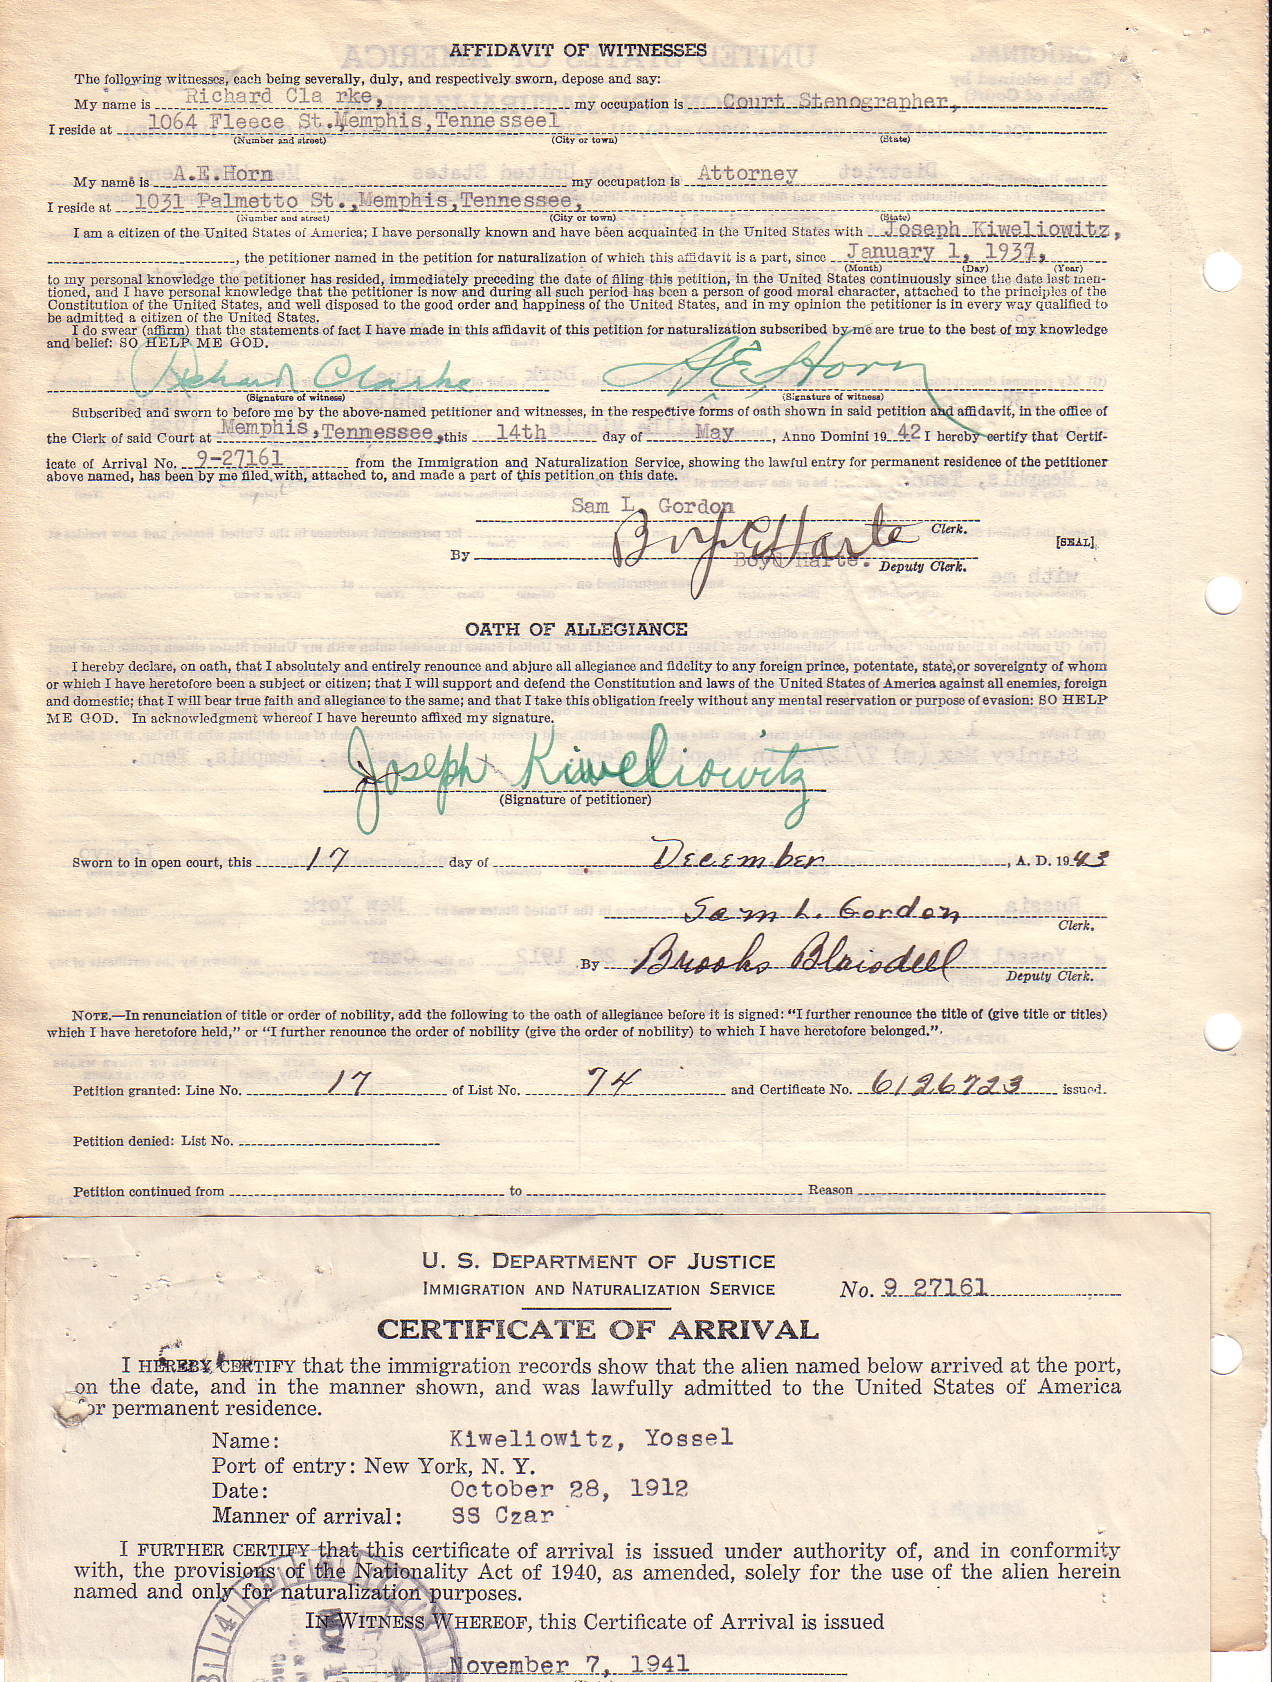 AFFIDAVIT OF WITNESSES
The following witnesses, each being severally, duly, and respectively sworn, depose and say:
My name is Richard Cla rke, my occupation is Court Stenographer,
I reside at 1064 Fleece St.,Memphis,Tennesseel
(Number and street) (City or town) (State)
My name is A.E.Horn my occupation is Attorney
I reside at 1031 Palmetto St.,Memphis,Tennessee,
(Number and street) (City or town) (State)
I am a citizen of the United States of America; I have personally known and have been acquainted in the United States with Joseph Kiweliowitz,
, the petitioner named in the petition for naturalization of which this affidavit is a part, since January 1, 1937,
(Month) (Day) (Year)
to my personal knowledge the petitioner has resided, immediately preceding the date of filing this petition, in the United States continuously since the date last men-
tioned, and I have personal knowledge that the petitioner is now and during all such period has been a person of good moral character, attached to the principles of the
Constitution of the United States, and well disposed to the good order and happiness of the United States, and in my opinion the petitioner is in every way qualified to
be admitted a citizen of the United States.
I do swear (affirm) that the statements of fact I have made in this affidavit of this petition for naturalization subscribed by me are true to the best of my knowledge
and belief: SO HELP ME GOD.
Richard Clarke A.E. Horn
(Signature of witness) (Signature of witness)
Subscribed and sworn to before me by the above-named petitioner and witnesses, in the respective forms of oath shown in said petition and affidavit, in the office of
the Clerk of said Court at Memphis,Tennessee, this 14th day of May, Anno Domini 19 42 I hereby certify that Certif-
icate of Arrival No. 9-27161 from the Immigration and Naturalization Service, showing the lawful entry for permanent residence of the petitioner
above named, has been by me filed with, attached to, and made a part of this petition on this date.
Sam L. Gordon
Clerk.
[SEAL]
By Boyd Harte
Boyd Harte. Deputy Clerk.
OATH OF ALLEGIANCE
I hereby declare, on oath, that I absolutely and entirely renounce and abjure all allegiance and fidelity to any foreign prince, potentate, state, or sovereignty of whom
or which I have heretofore been a subject or citizen; that I will support and defend the Constitution and laws of the United States of America against all enemies, foreign
and domestic; that I will bear true faith and allegiance to the same; and that I take this obligation freely without any mental reservation or purpose of evasion: SO HELP
ME GOD. In acknowledgment whereof I have hereunto affixed my signature.
Joseph Kiweliowitz
(Signature of petitioner)
Sworn to in open court, this 17 day of December, A. D. 19 43
Sam L. Gordon
Clerk.
By Brooks Blaisdell
Deputy Clerk.
NOTE.—In renunciation of title or order of nobility, add the following to the oath of allegiance before it is signed: “I further renounce the title of (give title or titles)
which I have heretofore held,” or “I further renounce the order of nobility (give the order of nobility) to which I have heretofore belonged.”
Petition granted: Line No. 17 of List No. 74 and Certificate No. 6126723 issued.
Petition denied: List No.
Petition continued from to Reason
U. S. DEPARTMENT OF JUSTICE
IMMIGRATION AND NATURALIZATION SERVICE
No. 9 27161
CERTIFICATE OF ARRIVAL
I HEREBY CERTIFY that the immigration records show that the alien named below arrived at the port,
on the date, and in the manner shown, and was lawfully admitted to the United States of America
for permanent residence.
Name: Kiweliowitz, Yossel
Port of entry: New York, N. Y.
Date: October 28, 1912
Manner of arrival: SS Czar
I FURTHER CERTIFY that this certificate of arrival is issued under authority of, and in conformity
with, the provisions of the Nationality Act of 1940, as amended, solely for the use of the alien herein
named and only for naturalization purposes.
IN WITNESS WHEREOF, this Certificate of Arrival is issued
November 7, 1941